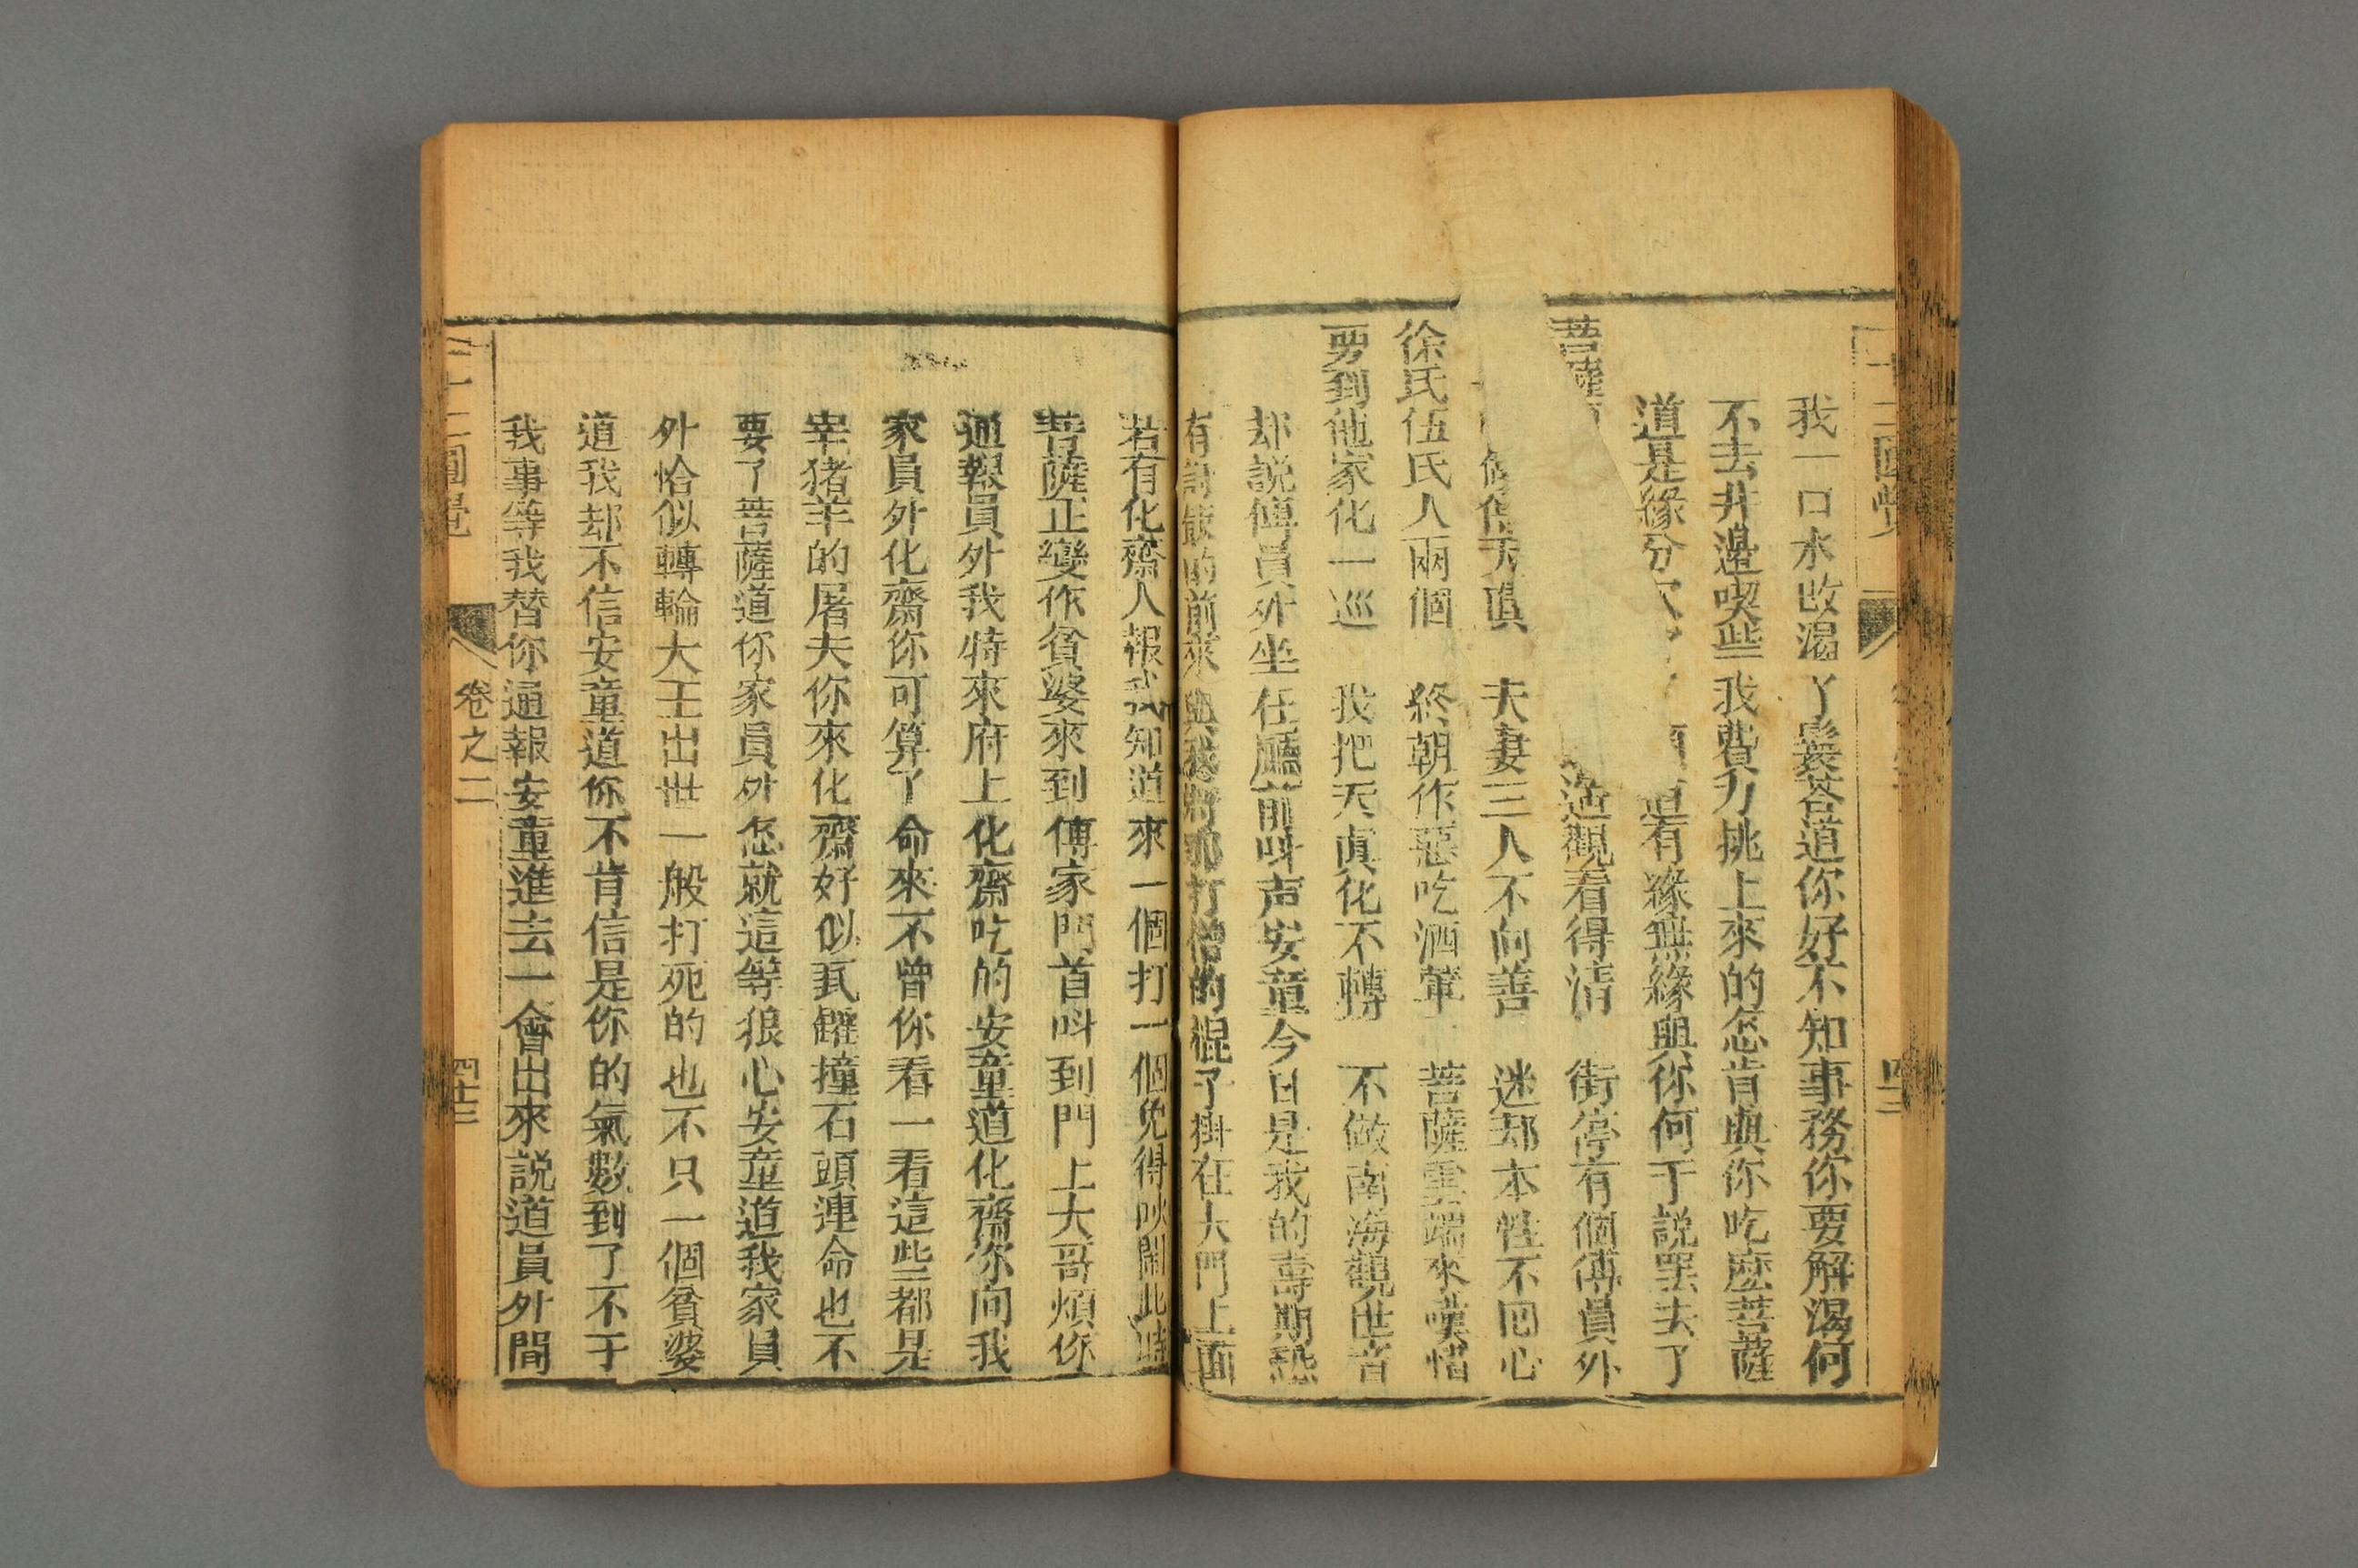 十二圓覺
我一口水改渴丫鬟荅道你好不知事務你要解渴何
不去井邉喫些我費力挑上來的怎肯與你吃麽菩薩
道是緣分 有緣無緣與你何干説罷去了
菩薩 觀看得清 街停有個傅員外
天眞 夫妻三人不向善 迷却本性不囘心
徐氏伍氏人兩個 終朝作惡吃酒葷 菩薩雲端來嘆惜
要到他家化一巡 我把天眞化不轉 不做南海觀世音
却説傅員外坐在廳前呌声安童今日是我的壽期恐
有 的前來與我將那打僧的棍子掛在大門上面
若有化齋人報我知道來一個打一個免得吵閙此時
菩薩正變作貧婆來到傅家門首呌到門上大哥煩你
通報員外我特來府上化齋吃的安童道化齋你向我
家員外化齋你可算了命來不曾你看一看這些都是
宰猪羊的屠夫你來化齋好似瓦罐撞石頭連命也不
要了菩薩道你家員外怎就這等狠心安童道我家員
外恰似轉輪大王出世一般打死的也不只一個貧婆
道我却不信安童道你不肯信是你的氣數到了不于
我事等我替你通報安童進去一會出來説道員外問
十二圓覺 卷之二 四十三